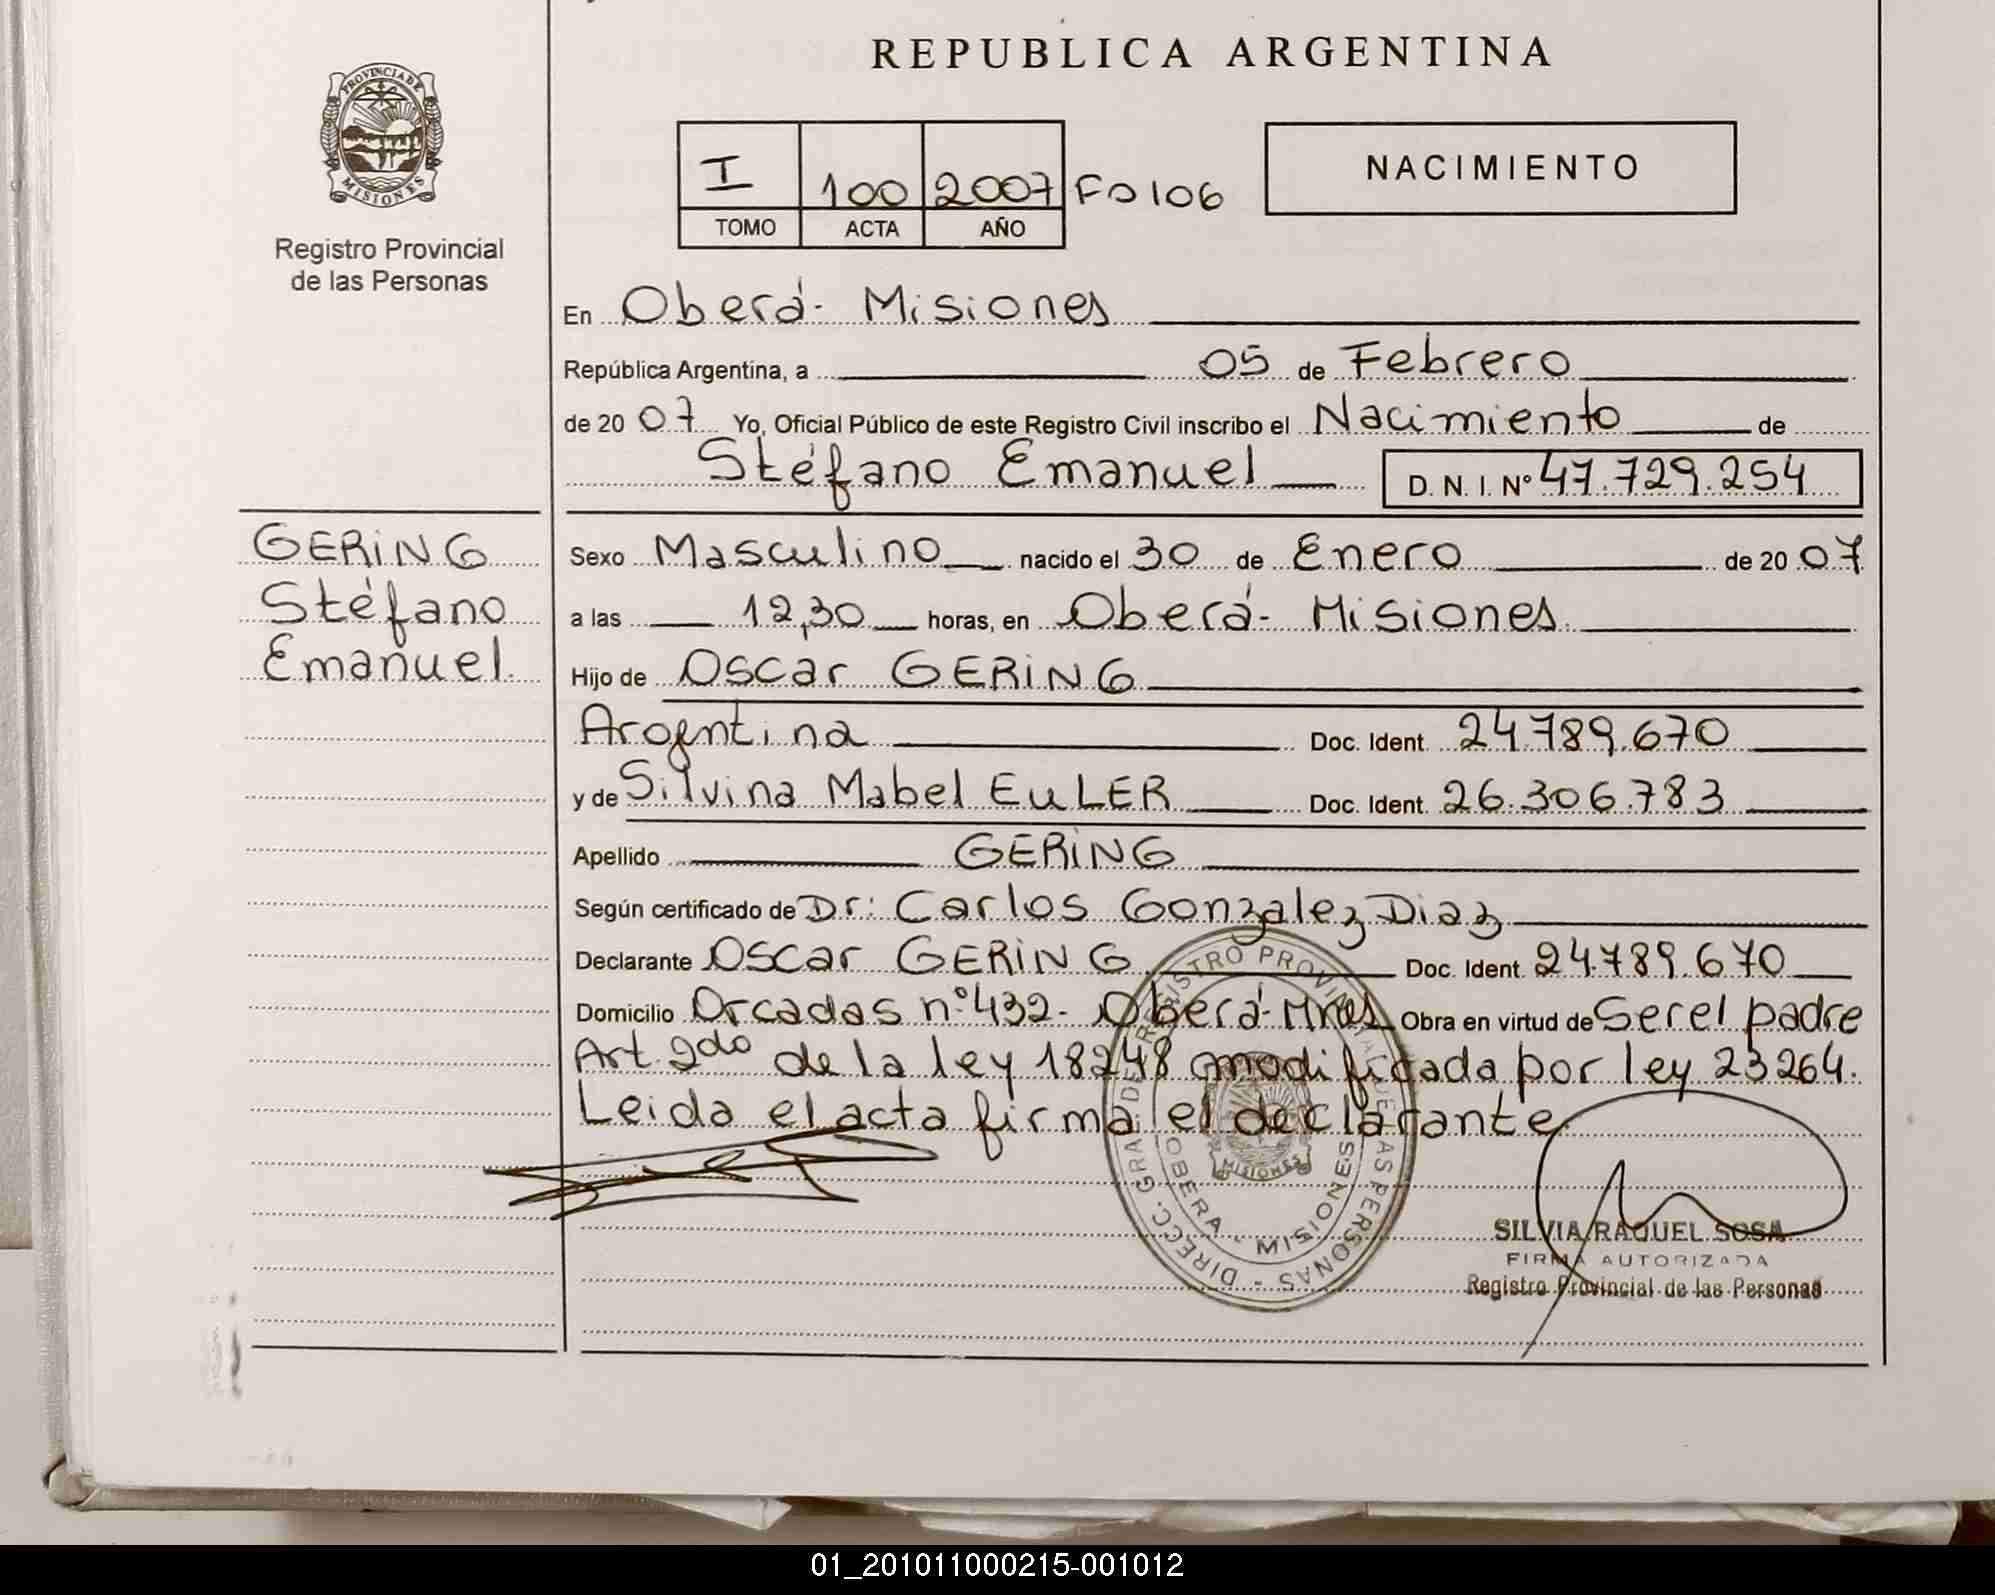 REPUBLICA ARGENTINA
PROVINCIA DE
MISIONES
Registro Provincial
de las Personas
I 100 2007 Fo 106
TOMO ACTA AÑO
NACIMIENTO
En Oberá- Misiones
República Argentina, a 05 de Febrero
de 2007 Yo, Oficial Público de este Registro Civil inscribo el Nacimiento de
Stéfano Emanuel D. N. I. Nº 47.729.254
GERING
Stéfano
Emanuel.
Sexo Masculino nacido el 30 de Enero de 2007
a las 12,30 horas, en Oberá- Misiones.
Hijo de Oscar GERING
Argentina Doc. Ident. 24.789.670
y de Silvina Mabel EULER Doc. Ident. 26.306.783
Apellido GERING
Según certificado de Dr: Carlos Gonzalez Diaz
Declarante Oscar GERING Doc. Ident. 24.789.670
Domicilio Orcadas nº 432- Oberá- Mnes Obra en virtud de Ser el padre
Art. 2do de la ley 18248 modificada por ley 23264.
Leida el acta firma el declarante.
DIRECC. GRAL. DE REGISTRO PROVINCIAL DE LAS PERSONAS -
OBERA - MISIONES
MISIONES
SILVIA RAQUEL SOSA
FIRMA AUTORIZADA
Registro Provincial de las Personas
01_201011000215-001012